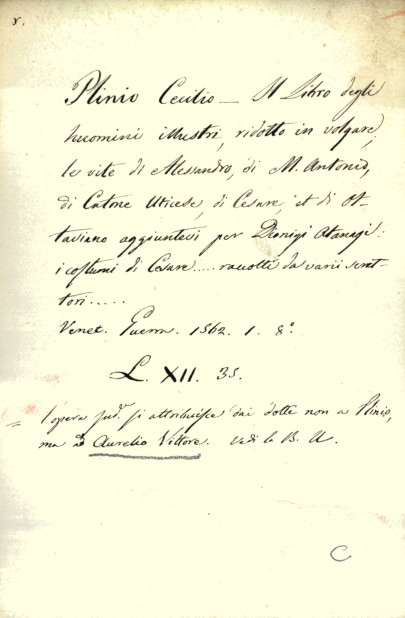 8.
Plinio Cecilio — Il Libro degli
huomini illustri, ridotto in volgare,
le vite di Alessandro, di M. Antonio,
di Catone Uticese, di Cesare, et di Ot-
taviano aggiuntevi per Dionigi Atanagi:
i costumi di Cesare.... raccolti da varii scrit-
tori.....
Venet. Guerra. 1562. 1. 8°.
L. XII. 35.
= l'opera sudª. si attribuisce dai dotti non a Plinio,
ma ad Aurelio Vittore. Vedi la B. U.
C